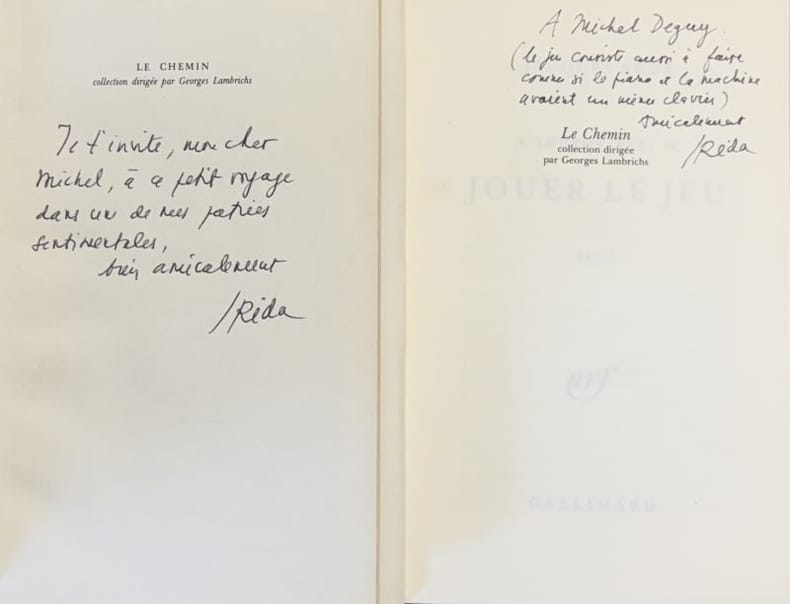 LE CHEMIN
collection dirigée par Georges Lambrichs
Je t'invite, mon cher
Michel, à ce petit voyage
dans une de mes patries
sentimentales,
bien amicalement
J Réda
A Michel Deguy
(le jeu consiste aussi à faire
comme si le piano et la machine
avaient un même clavier)
amicalement
J Réda
Le Chemin
collection dirigée
par Georges Lambrichs
JOUER LE JEU
nrf
GALLIMARD